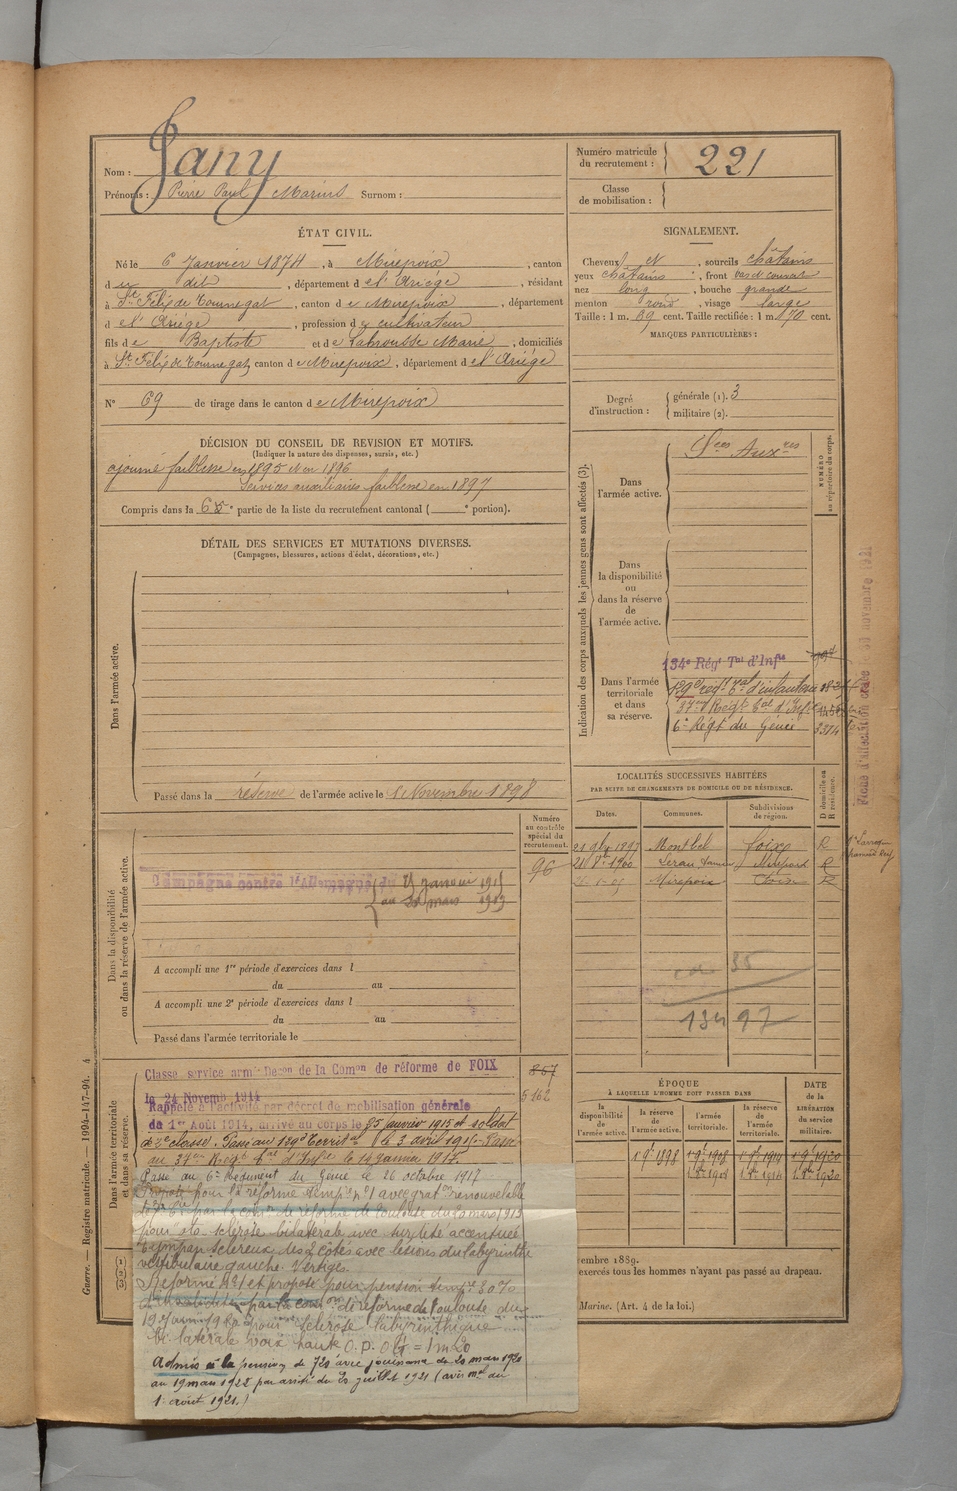 Nom : Jany
Prénoms : Pierre Paul Marius Surnom :
Numéro matricule du recrutement : 221
Classe de mobilisation :
ÉTAT CIVIL.
Né le 6 Janvier 1874, à Mirepoix, canton
d u dit, département d e l'Ariège, résidant
à St Félix de Tournegat, canton d e Mirepoix, département
d e l'Ariège, profession d e cultivateur
fils d e Baptiste et d e Labrousse Marie, domiciliés
à St Félix de Tournegat, canton d e Mirepoix, département d e l'Ariège
N° 69 de tirage dans le canton d e Mirepoix
SIGNALEMENT.
Cheveux N, sourcils châtains
yeux châtains, front
nez long, bouche grande
menton rond, visage large
Taille : 1 m. 69 cent. Taille rectifiée : 1 m. 70 cent.
MARQUES PARTICULIÈRES :
Degré d'instruction : générale (1). 3
militaire (2).
DÉCISION DU CONSEIL DE REVISION ET MOTIFS.
(Indiquer la nature des dispenses, sursis, etc.)
ajourné faiblesse en 1895 et en 1896
Services auxiliaires faiblesse en 1897
Compris dans la 6e partie de la liste du recrutement cantonal ( e portion).
DÉTAIL DES SERVICES ET MUTATIONS DIVERSES.
(Campagnes, blessures, actions d'éclat, décorations, etc.)
Dans l'armée active.
Passé dans la réserve de l'armée active le 1 Novembre 1898
Indication des corps auxquels les jeunes gens sont affectés (3).
NUMÉRO au répertoire du corps.
Dans l'armée active.
Sces Auxres
Dans la disponibilité ou dans la réserve de l'armée active.
Dans l'armée territoriale et dans sa réserve.
134e Régt Tal d'Infie
129e régt Tal d'infanterie
37me Régt Tal d'Infie
6e Régt du Génie 3314
Fiche d'affectation
novembre 1921
LOCALITÉS SUCCESSIVES HABITÉES
PAR SUITE DE CHANGEMENTS DE DOMICILE OU DE RÉSIDENCE.
Dates. Communes. Subdivisions de région. D domicile ou R résidence.
1897 Montbel Foix R
1900 Léran R
Mirepoix Foix R
35
134 97
Numéro au contrôle spécial du recrutement.
96
Dans la disponibilité ou dans la réserve de l'armée active.
Campagne contre l'Allemagne du 25 janvier 1915
au 20 mars 1919
A accompli une 1re période d'exercices dans l
du au
A accompli une 2e période d'exercices dans l
du au
Passé dans l'armée territoriale le
Dans l'armée territoriale et dans sa réserve.
Classe service armé Déçon de la Comon de réforme de FOIX
le 24 Novemb 1914
867
5162
Rappelé à l'activité par décret de mobilisation générale
du 1er Août 1914, arrivé au corps le 25 janvier 1915 et soldat
de 2e classe. Passé au 129e Territal le 3 avril 1915. Passé
au 37me Régt Tal d'Infie le 14 janvier 1917.
Passé au 6e Régiment du Génie le 26 octobre 1917
Proposé pour la réforme tempre n°1 avec graton renouvelable
par la com de réforme de Toulouse du 20 mars 1919
pour oto sclérose bilatérale avec surdité accentuée
Tympan scléreux des 2 côtés avec lésions du labyrinthe
vestibulaire gauche. Vertiges.
Réformé n°1 et proposé pour pension tempre 30 %
par la com on de réforme de Toulouse du
pour sclérose labyrinthique
bilatérale voix haute O.D. O.G = 1m20
Admis à la pension de 720 avec jouissance du 20 mars 1920
au 19 mars 1922 par arrêté du 20 juillet 1921 (avis mel du
1er août 1921.)
ÉPOQUE À LAQUELLE L'HOMME DOIT PASSER DANS
la disponibilité de l'armée active. la réserve de l'armée active. l'armée territoriale. la réserve de l'armée territoriale.
DATE de la LIBÉRATION du service militaire.
1 9bre 1898 1 9bre 1908 1 9bre 1914 1 9bre 1920
embre 1889.
exercés tous les hommes n'ayant pas passé au drapeau.
Marine. (Art. 4 de la loi.)
Guerre. — Registre matricule. — 1994-147-94. 4